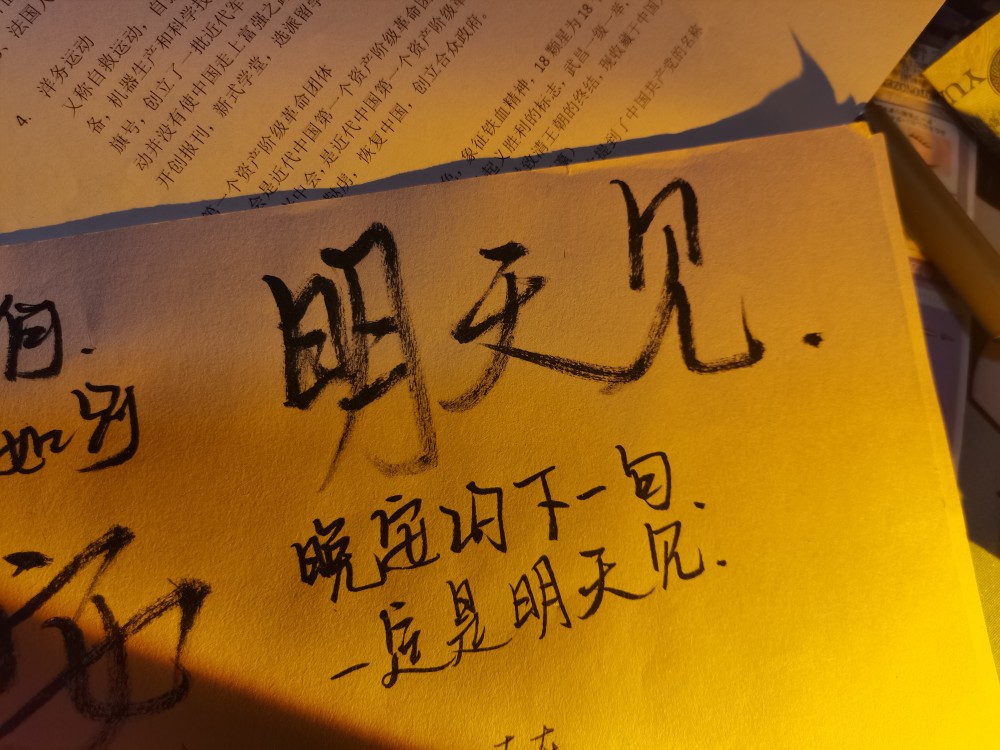 4. 洋务运动
又称自救运动，自
备，机器生产和科学技
旗号，创立了一批近代军
动并没有使中国走上富强之
开创报刊，新式学堂，选派留学
一个资产阶级革命团体
会是近代中国第一个资产阶级革
中会，是近代中国第一个资产阶级
恢复中国，创立合众政府。
象征铁血精神，18颗星为18
起义胜利的标志，武昌一级
王朝的终结，现收藏于中国
到了中国共产党的名称
明天见.
如别
晚安的下一句、
一定是明天见.